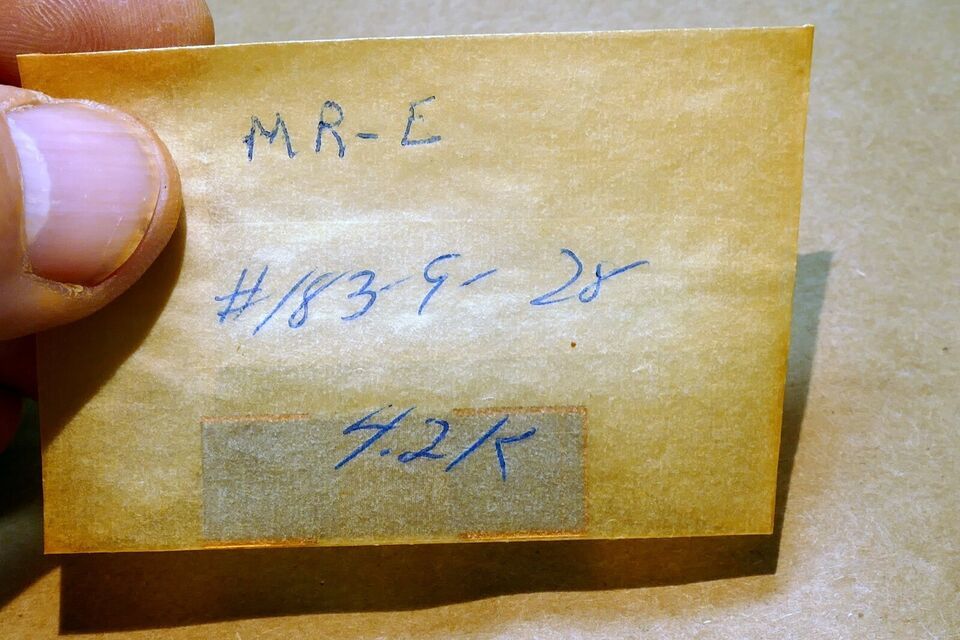 MR-E
#183-9-28
4.2K